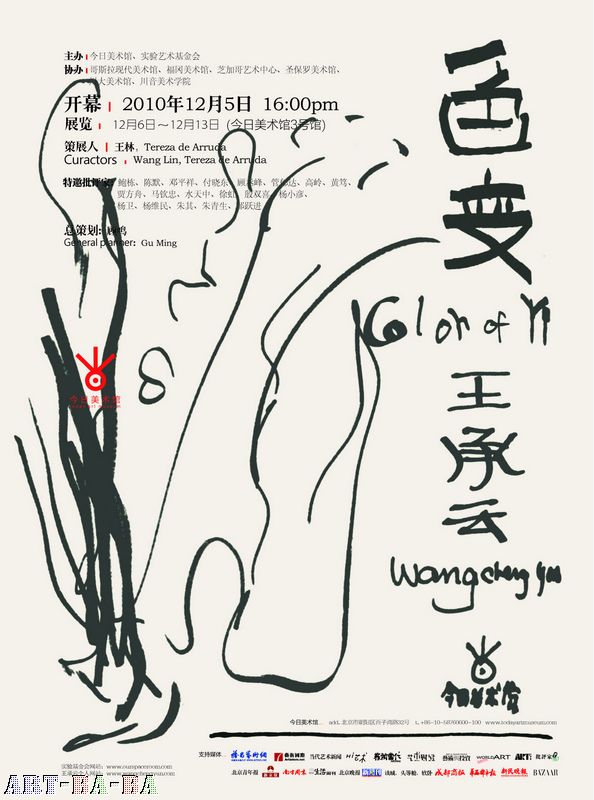 主办 | 今日美术馆、实验艺术基金会
协办 | 哥斯拉现代美术馆、福冈美术馆、芝加哥艺术中心、圣保罗美术馆、
大美术馆、川音美术学院
开幕 | 2010年12月5日 16:00pm
展览 | 12月6日～12月13日 (今日美术馆3号馆)
策展人 | 王林, Tereza de Arruda
Curactors | Wang Lin, Tereza de Arruda
特邀批评家 鲍栋、陈默、邓平祥、付晓东、顾承峰、管郁达、高岭、黄笃、
贾方舟、马钦忠、水天中、徐虹、殷双喜、杨小彦、
杨卫、杨维民、朱其、朱青生、邹跃进
总策划: 顾鸣
General planner: Gu Ming
色变
Color of Yi
王承云
wang cheng yun
今日美术馆
today art museum
今日美术馆
今日美术馆 add. 北京市朝阳区百子湾路32号 t. +86-10-58760600-100 www.todayartmuseum.com
支持媒体 当代艺术新闻 Hi艺术 WORLDART ART 批评家
北京青年报 南方周末 生活 北京晚报 新京报 读城、头等舱、软卧 成都商报 华西都市报 新民晚报 BAZAAR
实验基金会网站: www.ourspaceroom.com
王承云个人网站: www.wangchengyun.com
ART-BA-BA